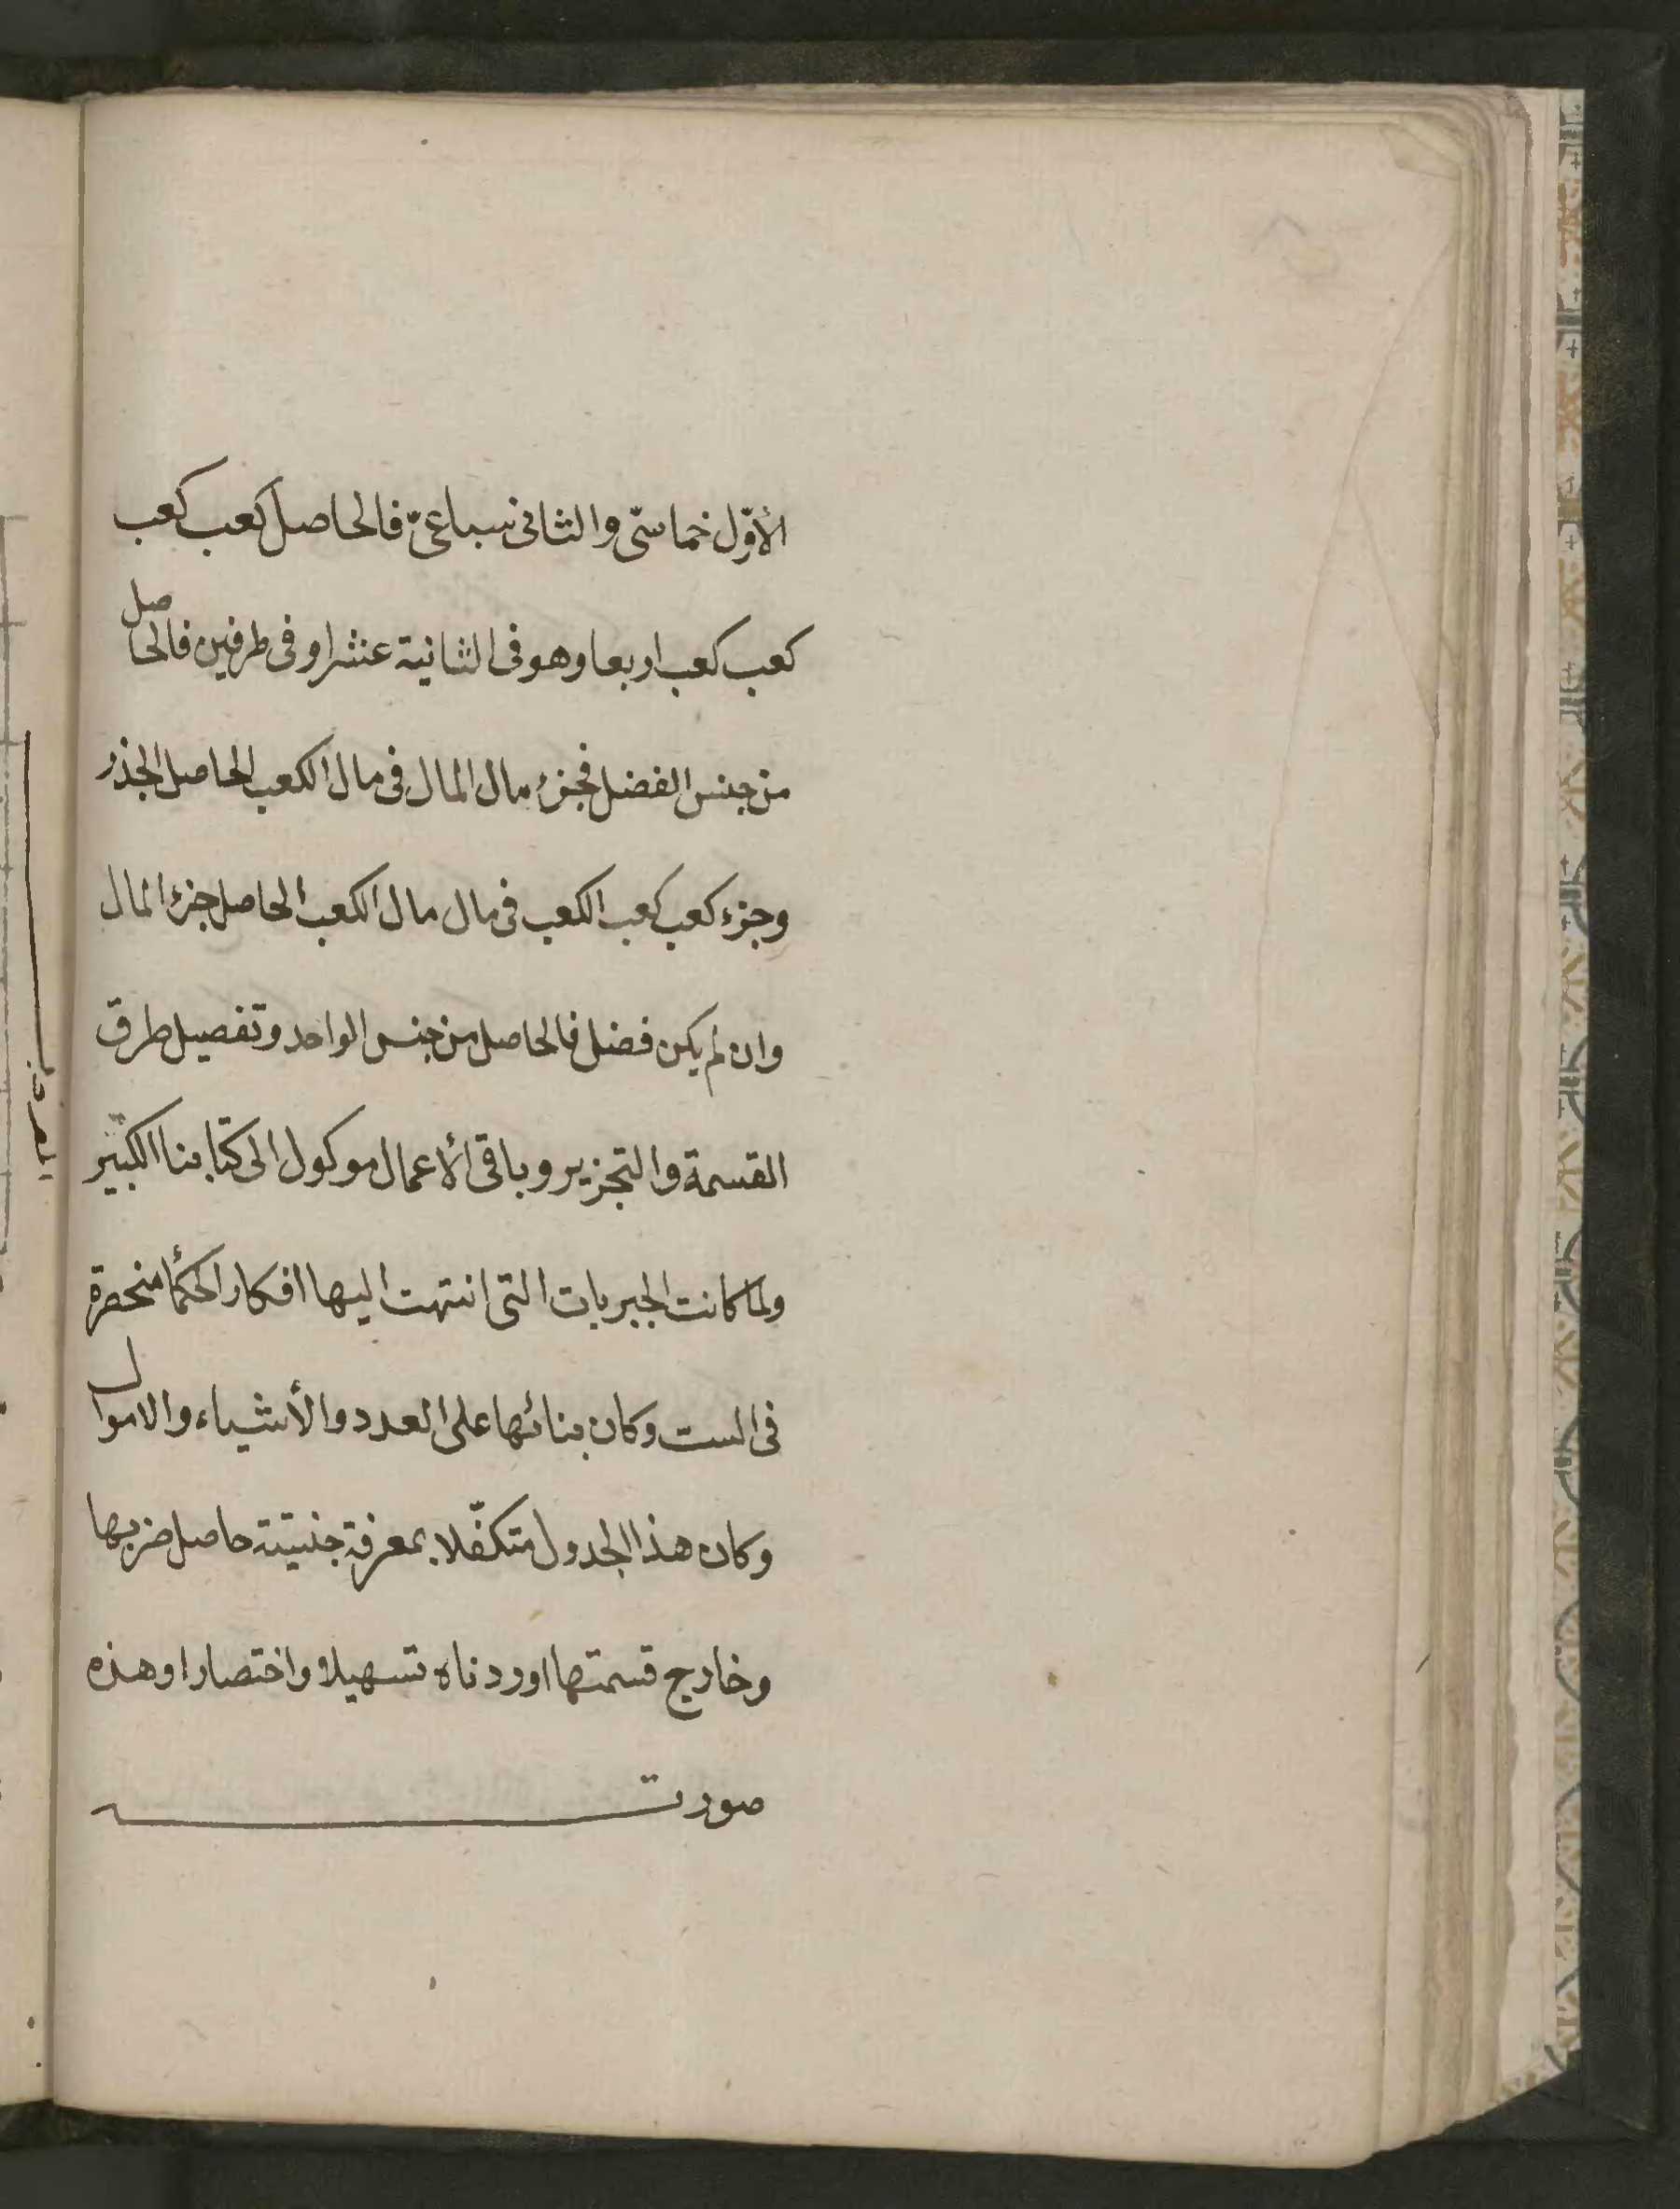 الأوّل خماسّى والثانى سباعىّ فالحاصل كعب كعب
كعب كعب اربعا وهو فى الثانية عشر او فى طرفين فالحاصل
من جنس الفضل فجزء مال المال فى مال الكعب الحاصل الجذر
وجزء كعب كعب الكعب فى مال مال الكعب الحاصل جزء المال
وان لم يكن فضل فالحاصل من جنس الواحد وتفصيل طرق
القسمة والتجزير وباقى الأعمال موكول الى كتابنا الكبير
ولما كانت الجبريات التى انتهت اليها افكار الحكمأ منحصرة
فى الست وكان بنائها على العدد والأشياء والاموال
وكان هذا الجدول متكفّلا بمعرفة جنيتة حاصل ضربها
وخارج قسمتها اوردناه تسهيلا واختصارا وهذه
صورته